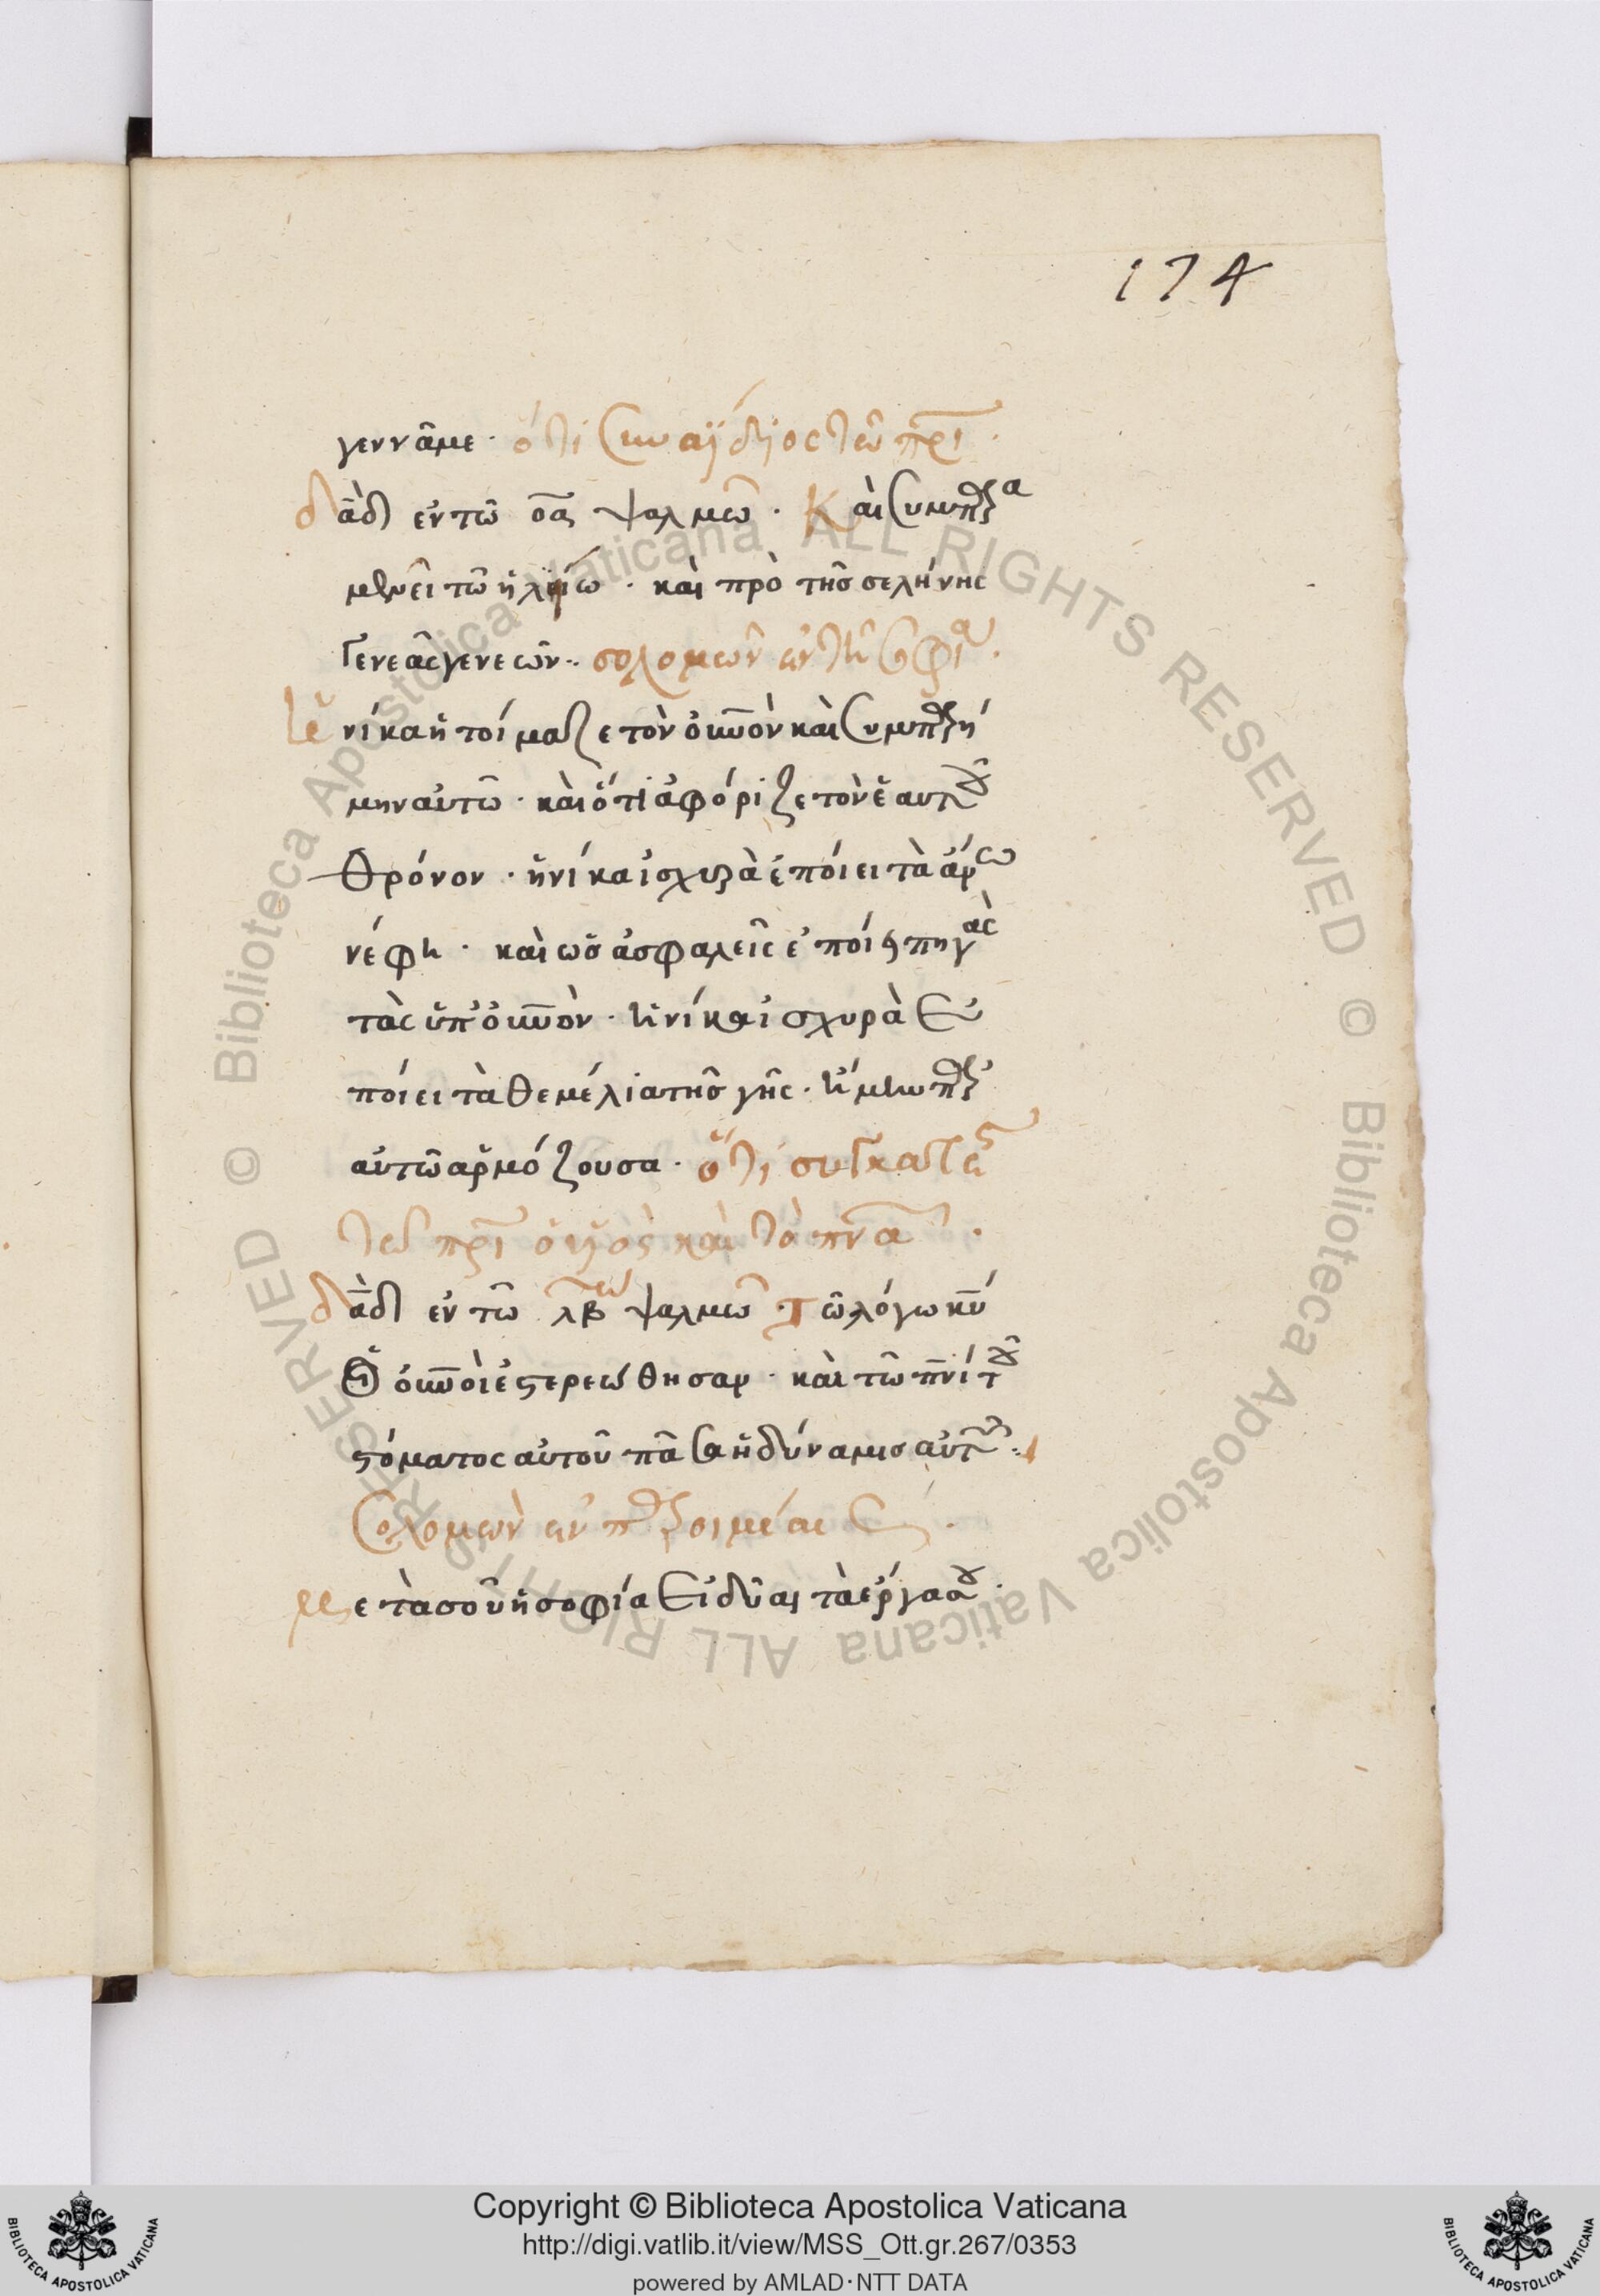 174
γεννᾶμε · ὅτι συναΐδιος τῶ πρι ·
δαδ ἐν τῶ οα ψαλμῶ · Καὶ συμπαρα
μενεῖ τῶ ἡλίω · καὶ πρὸ τῆσ σελήνης
Γενεὰς γενεῶν ·· σολομῶν ἐν τῆ σοφία ·
ἡνίκα ἡτοίμαζε τὸν οὐνον καὶ συμπαρή
μην αὐτῶ · καὶ ὅτι ἀφόριζε τὸν ἑαυτοῦ
θρόνον · ἡνίκα ἰσχυρὰ ἐποίει τὰ ἄνω
νέφη · καὶ ὡσ ἀσφαλεῖς ἐποίει πηγὰς
τὰς ὑπ' οὐνον · ἡνίκα ἰσχυρὰ ἐ
ποίει τὰ θεμέλια τῆσ γῆς · ἤμην παρ'
αὐτῶ ἁρμόζουσα · ὅτι
τῶ πρι ὁ υἱὸς καὶ τὸ πνα ·
δαδ ἐν τῶ λβω ψαλμῶ · Τῶ λόγω κυ
οἱ οὐνοὶ ἐστερεώθησαν · καὶ τῶ πνι τοῦ
στόματος αὐτοῦ πᾶσα ἡ δύναμισ αὐτῶν ··
Σολομὼν ἐν παροιμίαις ·
μετὰ σοῦ ἡ σοφία ἡ εἰδυῖα τὰ ἔργα σου ·
Copyright © Biblioteca Apostolica Vaticana
http://digi.vatlib.it/view/MSS_Ott.gr.267/0353
powered by AMLAD·NTT DATA
© Biblioteca Apostolica Vaticana ALL RIGHTS RESERVED
© Biblioteca Apostolica Vaticana ALL RIGHTS RESERVED
BIBLIOTECA APOSTOLICA VATICANA
BIBLIOTECA APOSTOLICA VATICANA